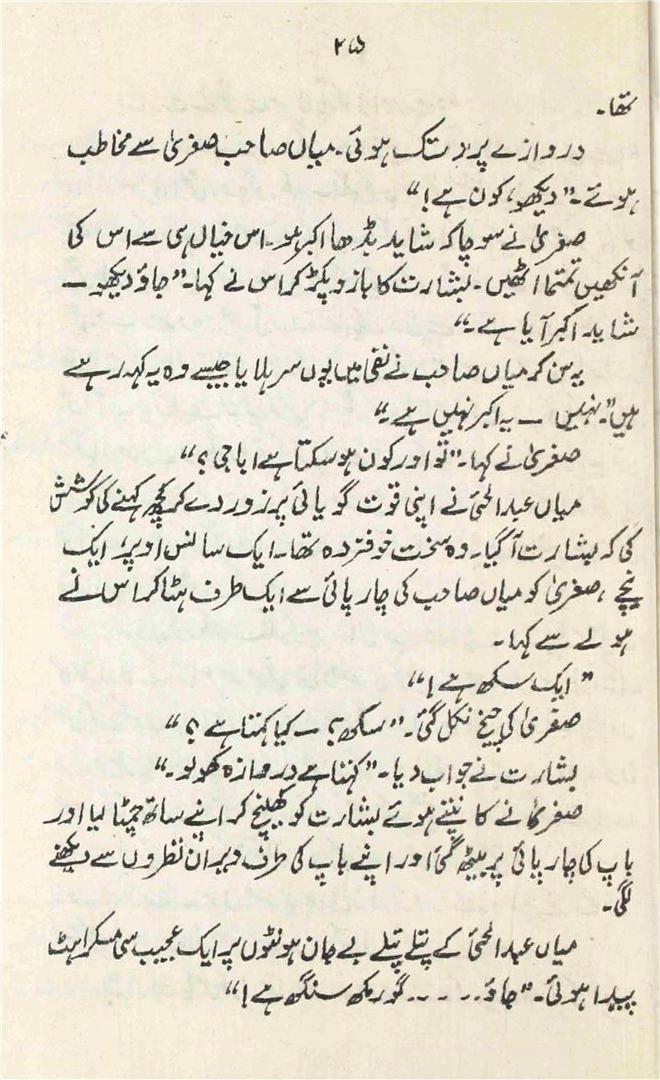 ۲۵
تھا۔
دروازے پر دستک ہوئی۔ میاں صاحب صغریٰ سے مخاطب
ہوئے۔ ”دیکھو، کون ہے!“
صغریٰ نے سوچا کہ شاید بڈھا اکبر ہو۔ اس خیال ہی سے اس کی
آنکھیں تمتما اٹھیں۔ بشارت کا بازو پکڑ کر اس نے کہا۔ ”جاؤ دیکھو —
شاید اکبر آیا ہے۔“
یہ سن کر میاں صاحب نے نفی میں یوں سر ہلایا جیسے وہ یہ کہہ رہے
ہیں ”نہیں — یہ اکبر نہیں ہے۔“
صغریٰ نے کہا۔ ”تو اور کون ہو سکتا ہے ابا جی؟“
میاں عبدالحئی نے اپنی قوت گویائی پر زور دے کر کچھ کہنے کی کوشش
کی کہ بشارت آ گیا۔ وہ سخت خوفزدہ تھا۔ ایک سانس اوپر، ایک
نیچے، صغریٰ کو میاں صاحب کی چارپائی سے ایک طرف ہٹا کر اس نے
ہولے سے کہا۔
”ایک سکھ ہے!“
صغریٰ کی چیخ نکل گئی۔ ”سکھ؟ — کیا کہتا ہے؟“
بشارت نے جواب دیا۔ ”کہتا ہے دروازہ کھولو۔“
صغریٰ نے کانپتے ہوئے بشارت کو کھینچ کر اپنے ساتھ چمٹا لیا اور
باپ کی چارپائی پر بیٹھ گئی اور اپنے باپ کی طرف ویران نظروں سے دیکھنے
لگی۔
میاں عبدالحئی کے پتلے پتلے بے جان ہونٹوں پر ایک عجیب سی مسکراہٹ
پیدا ہوئی۔ ”جاؤ۔۔۔۔۔ گورمکھ سنگھ ہے!“